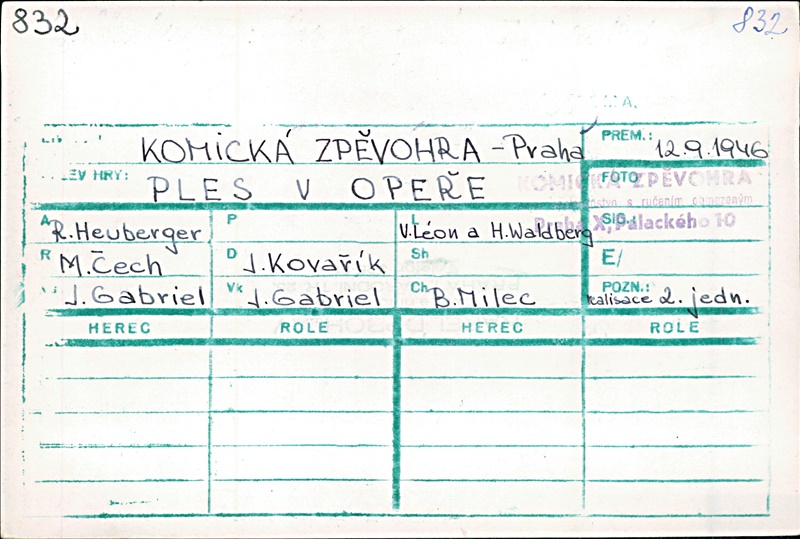 832 832
KOMICKÁ ZPĚVOHRA - Praha PREM.: 12.9.1946
EV HRY: PLES V OPEŘE FOTO
KOMICKÁ ZPĚVOHRA
s ručením omezeným
Praha X, Palackého 10
A R. Heuberger P L V. Léon a H. Waldberg SIG.:
R M. Čech D J. Kovařík Sh E/
J. Gabriel Vk J. Gabriel Ch B. Milec POZN.: realisace 2. jedn.
HEREC ROLE HEREC ROLE